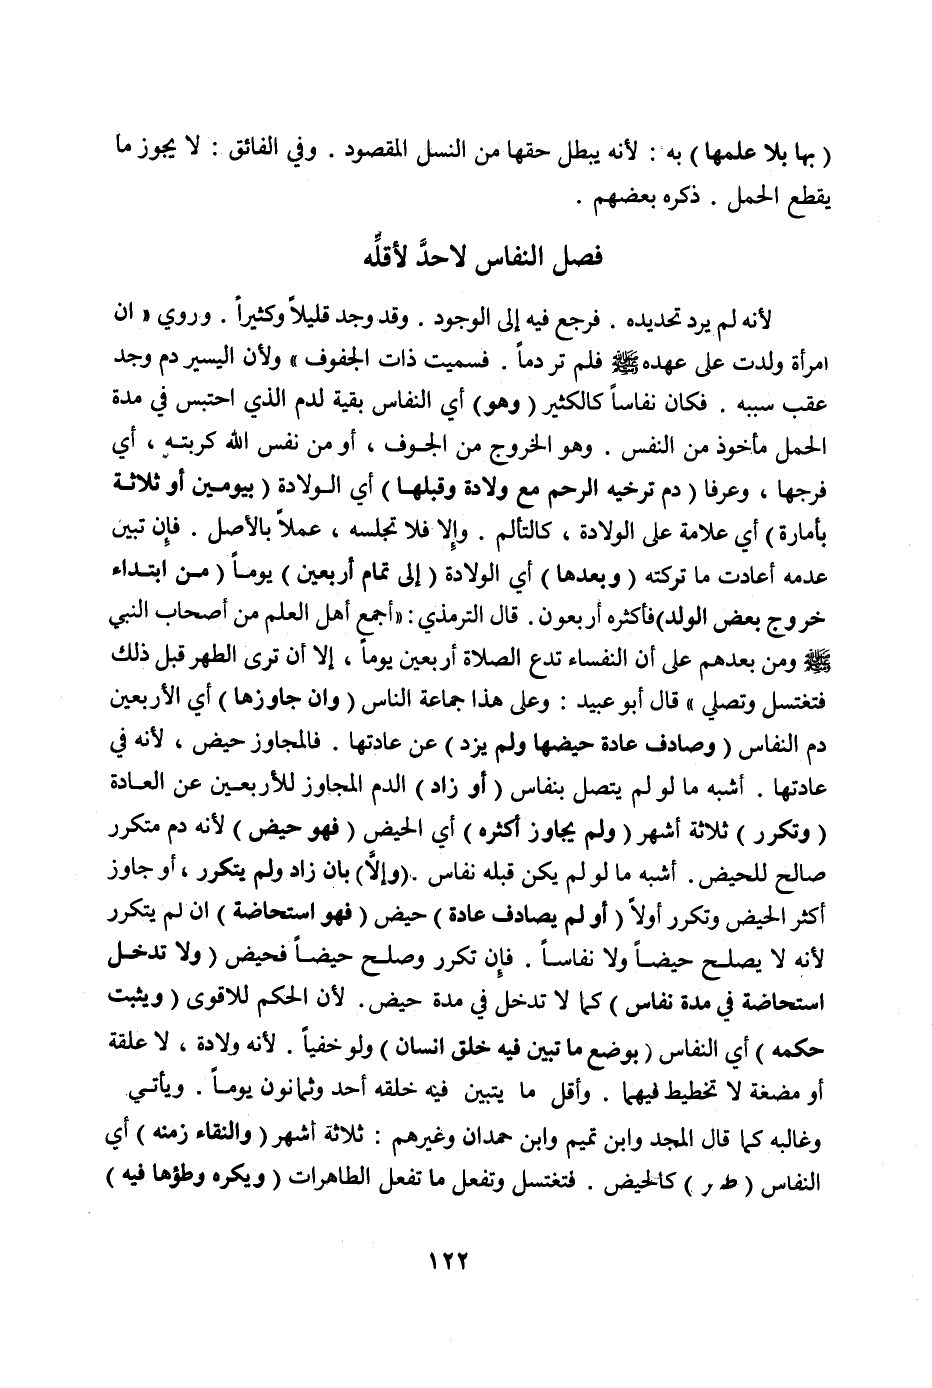 ( بها بلا علمها ) به : لأنه يبطل حقها من النسل المقصود . وفي الفائق : لا يجوز ما
يقطع الحمل . ذكره بعضهم .
فصل النفاس لاحدَّ لأقلِّه
لأنه لم يرد تحديده . فرجع فيه إلى الوجود . وقد وجد قليلاً وكثيراً . وروي « ان
امرأة ولدت على عهده ﷺ فلم تر دماً . فسميت ذات الجفوف » ولأن اليسير دم وجد
عقب سببه . فكان نفاساً كالكثير ( وهو ) أي النفاس بقية لدم الذي احتبس في مدة
الحمل مأخوذ من النفس . وهو الخروج من الجوف ، أو من نفس الله كربته ، أي
فرجها ، وعرفا ( دم ترخيه الرحم مع ولادة وقبلها ) أي الولادة ( بيومين أو ثلاثة
بأمارة ) أي علامة على الولادة ، كالتألم . وإلا فلا تجلسه ، عملاً بالأصل . فإن تبين
عدمه أعادت ما تركته ( وبعدها ) أي الولادة ( إلى تمام أربعين ) يوماً ( من ابتداء
خروج بعض الولد) فأكثره أربعون . قال الترمذي : « أجمع أهل العلم من أصحاب النبي
ﷺ ومن بعدهم على أن النفساء تدع الصلاة أربعين يوماً ، إلا أن ترى الطهر قبل ذلك
فتغتسل وتصلي » قال أبو عبيد : وعلى هذا جماعة الناس ( وان جاوزها ) أي الأربعين
دم النفاس ( وصادف عادة حيضها ولم يزد ) عن عادتها . فالمجاوز حيض ، لأنه في
عادتها . أشبه ما لو لم يتصل بنفاس ( أو زاد ) الدم المجاوز للأربعين عن العادة
( وتكرر ) ثلاثة أشهر ( ولم يجاوز أكثره ) أي الحيض ( فهو حيض ) لأنه دم متكرر
صالح للحيض . أشبه ما لو لم يكن قبله نفاس . (وإلَّا) بان زاد ولم يتكرر ، أو جاوز
أكثر الحيض وتكرر أولاً ( أو لم يصادف عادة ) حيض ( فهو استحاضة ) ان لم يتكرر
لأنه لا يصلح حيضاً ولا نفاساً . فإن تكرر وصلح حيضاً فحيض ( ولا تدخل
استحاضة في مدة نفاس ) كما لا تدخل في مدة حيض . لأن الحكم للاقوى ( ويثبت
حكمه ) أي النفاس ( بوضع ما تبين فيه خلق انسان ) ولو خفياً . لأنه ولادة ، لا علقة
أو مضغة لا تخطيط فيهما . وأقل ما يتبين فيه خلقه أحد وثمانون يوماً . ويأتي
وغالبه كما قال المجد وابن تميم وابن حمدان وغيرهم : ثلاثة أشهر ( والنقاء زمنه ) أي
النفاس ( طهر ) كالحيض . فتغتسل وتفعل ما تفعل الطاهرات ( ويكره وطؤها فيه )
١٢٢